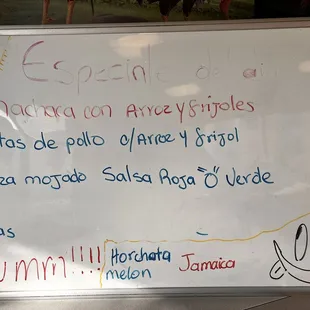 Especiale del
machara con Arroz y frijoles
tas de pollo c/Arroz y frijol
za mojado Salsa Roja "O" Verde
as
umm!!!! Horchata Jamaica
melon